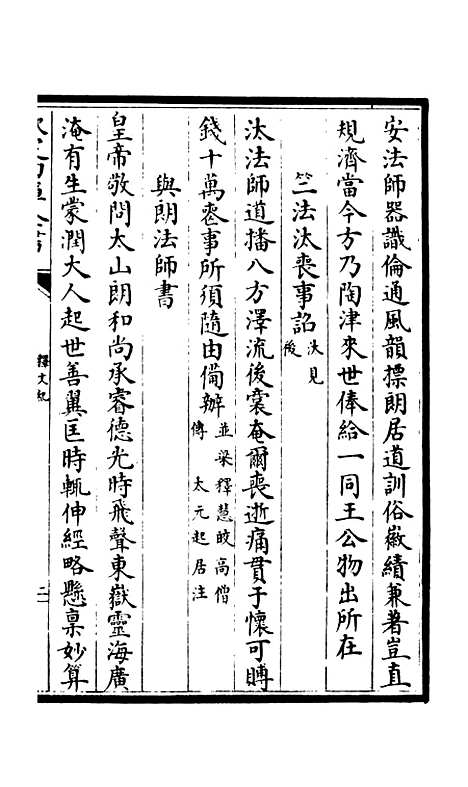 安法師器識倫通風韻摽朗居道訓俗徽績兼著豈直
規濟當今方乃陶津來世俸給一同王公物出所在
竺法汰喪事詔汰見後
汰法師道播八方澤流後裔奄爾喪逝痛貫于懷可賻
錢十萬喪事所須隨由備辦並梁釋慧皎高僧傳 太元起居注
與朗法師書
皇帝敬問太山朗和尚承睿德光時飛聲東嶽靈海廣
淹有生蒙潤大人起世善翼匡時輒伸經略懸稟妙算
釋文紀
二